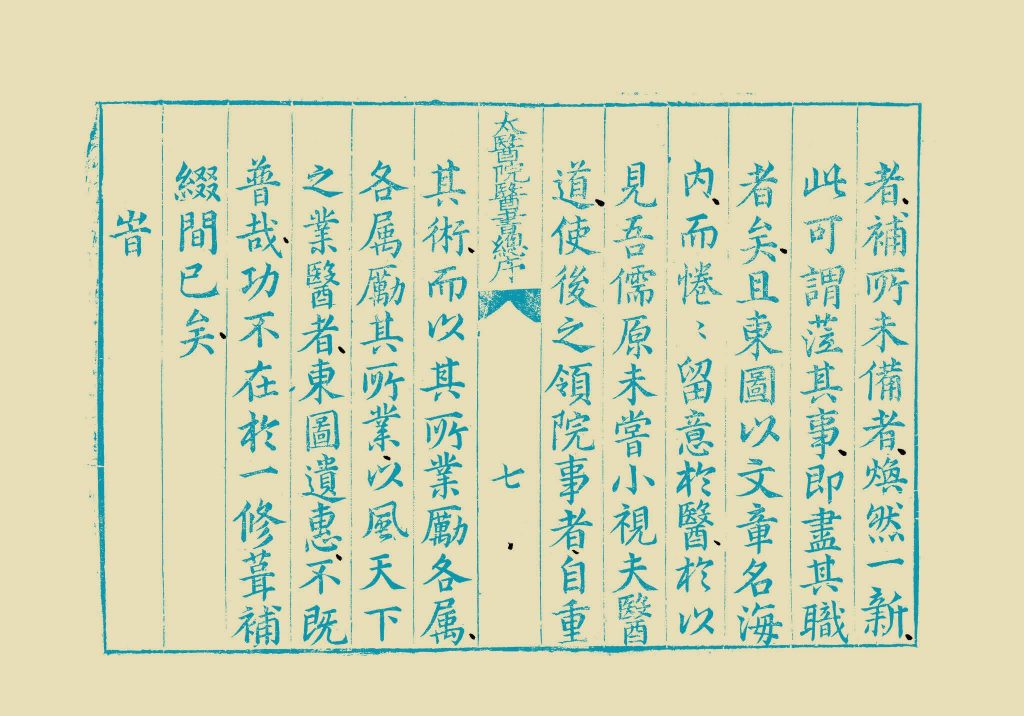 者、補所未備者、煥然一新、
此可謂蒞其事、即盡其職
者矣、且東圖以文章名海
内、而惓〻留意於醫、於以
見吾儒原未嘗小視夫醫
道、使後之領院事者、自重
太醫院醫書總序
七
其術、而以其所業勵各属、
各属勵其所業、以風天下
之業醫者、東圖遺惠、不既
普哉、功不在於一修葺補
綴間已矣、
旹